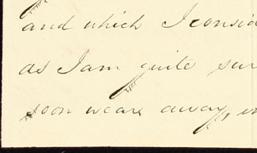 and which I consid
as I am quite sur
soon wear away, in